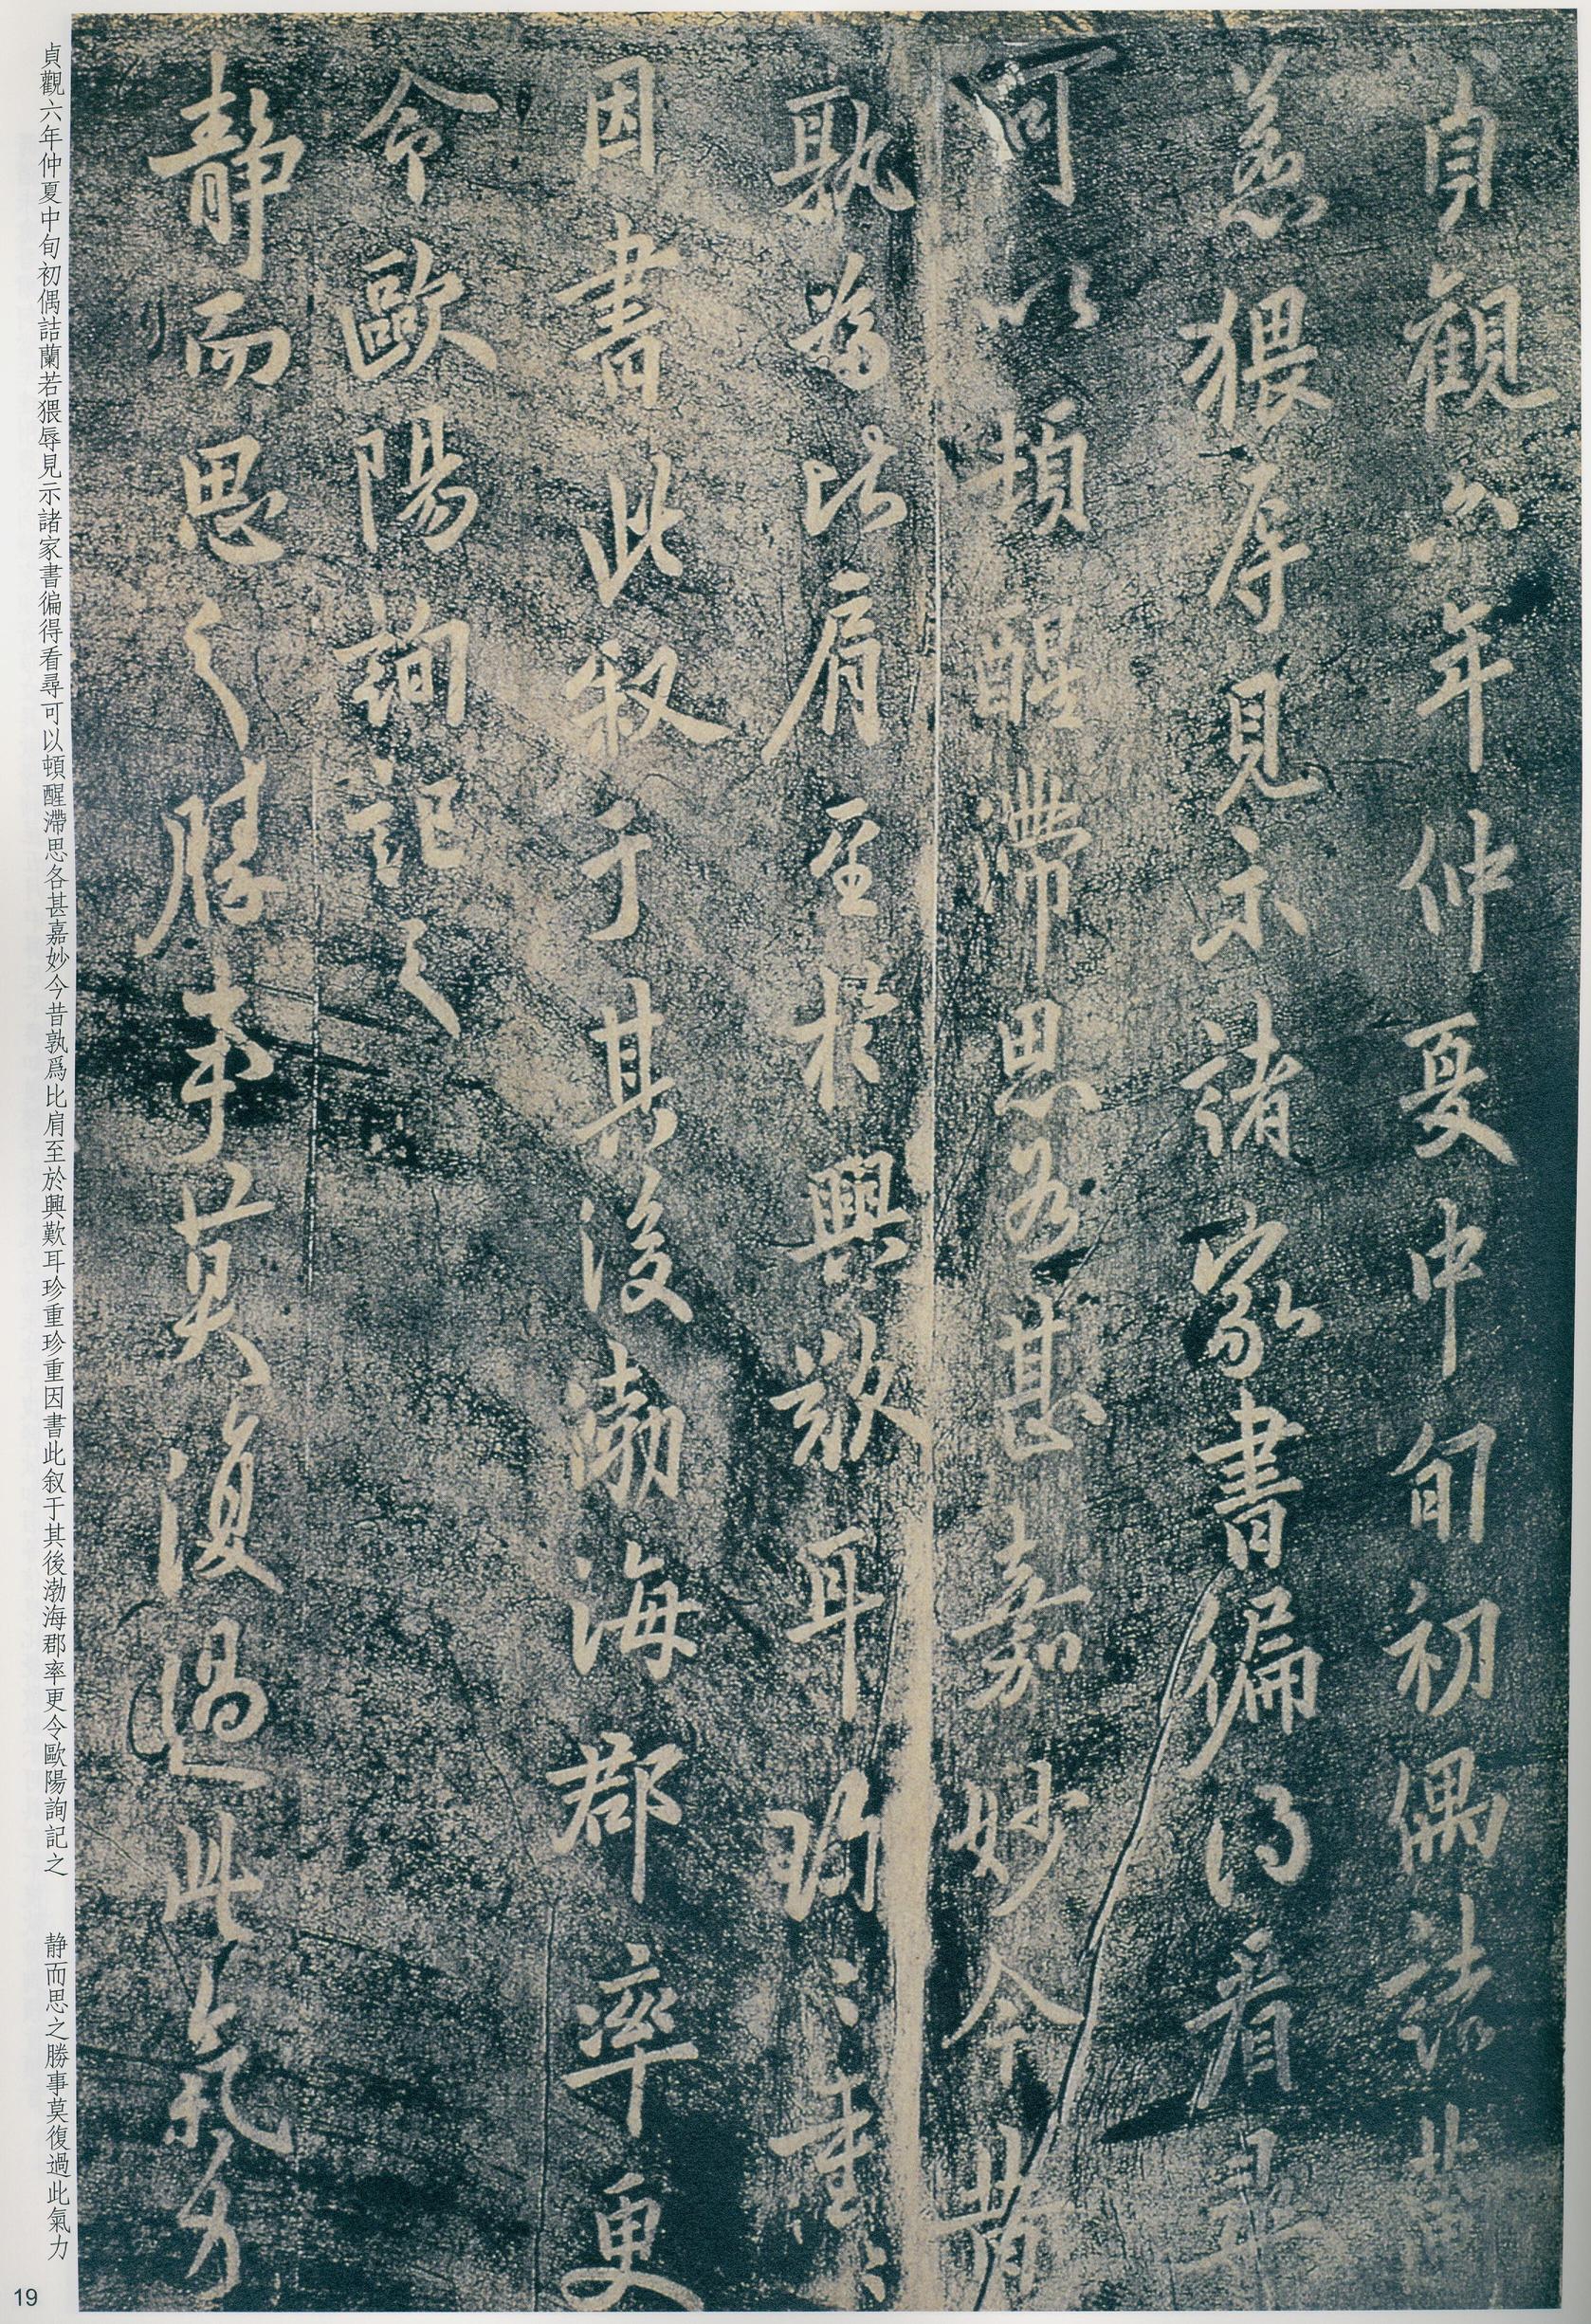 貞觀六年仲夏中旬初偶詰蘭
若猥辱見示諸家書徧得看尋
可以頓醒滯思各甚嘉妙今昔
孰為比肩至於興歎耳珍重珍重
因書此叙于其後渤海郡率更
令歐陽詢記之
静而思之勝事莫復過此氣力
貞觀六年仲夏中旬初偶詰蘭若猥辱見示諸家書徧得看尋可以頓醒滯思各甚嘉妙今昔孰爲比肩至於興歎耳珍重珍重因書此叙于其後渤海郡率更令歐陽詢記之　静而思之勝事莫復過此氣力
19